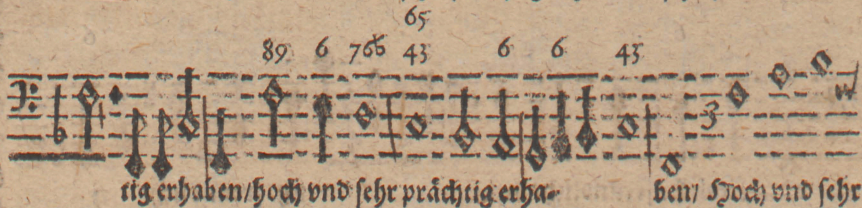 65
89 6 76b 43 6 6 43
3
tig erhaben/hoch vnd sehr prächtig erha- ben/ Hoch vnd sehr